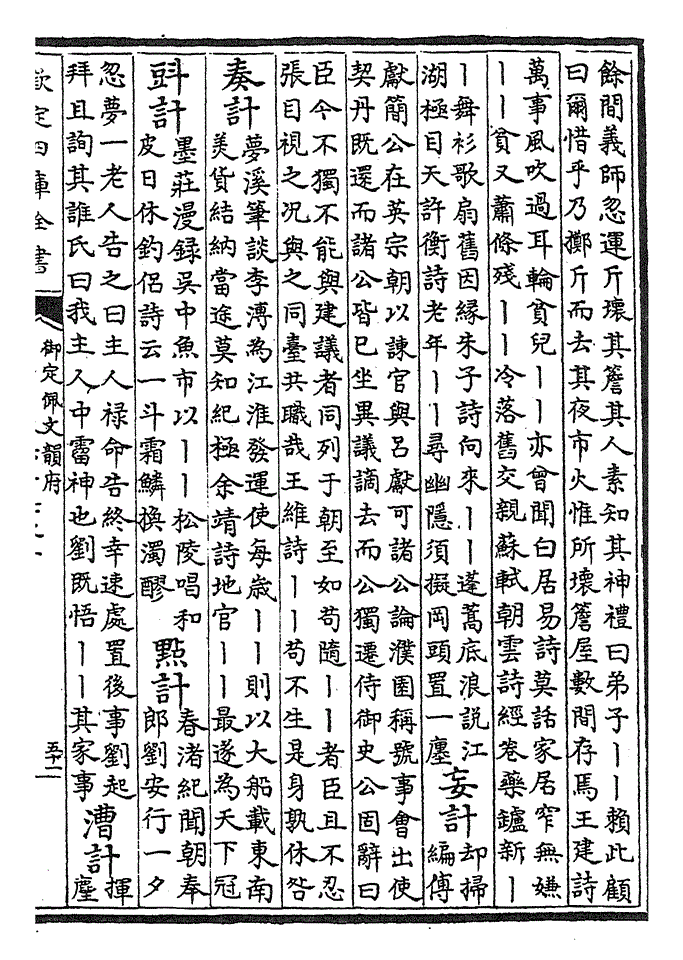 餘間義師忽運斤壞其簷其人素知其神禮曰弟子丨丨賴此顧
曰爾惜乎乃擲斤而去其夜市火惟所壞簷屋數間存焉王建詩
萬事風吹過耳輪貧兒丨丨亦曾聞白居易詩莫話家居窄無嫌
丨丨貧又蕭條殘丨丨冷落舊交親蘇軾朝雲詩經卷藥鑪新丨
丨舞衫歌扇舊因緣朱子詩向來丨丨蓬蒿底浪說江
湖極目天許衡詩老年丨丨尋幽隱須擬岡頭置一廛
妄計
却掃
編傅
獻簡公在英宗朝以諫官與呂獻可諸公論濮園稱號事會出使
契丹既還而諸公皆已坐異議謫去而公獨遷侍御史公固辭曰
臣今不獨不能與建議者同列于朝至如苟隨丨丨者臣且不忍
張目視之况與之同臺共職哉王維詩丨丨苟不生是身孰休咎
奏計
夢溪筆談李溥為江淮發運使每歲丨丨則以大船載東南
美貨結納當途莫知紀極余靖詩地官丨丨最遂為天下冠
㪷計
墨莊漫録吳中魚市以丨丨松陵唱和
皮日休釣侶詩云一斗霜鱗換濁醪
點計
春渚紀聞朝奉
郎劉安行一夕
忽夢一老人告之曰主人禄命告終幸速處置後事劉起
拜且詢其誰氏曰我主人中霤神也劉既悟丨丨其家事
漕計
揮
麈
欽定四庫全書
御定佩文韻府